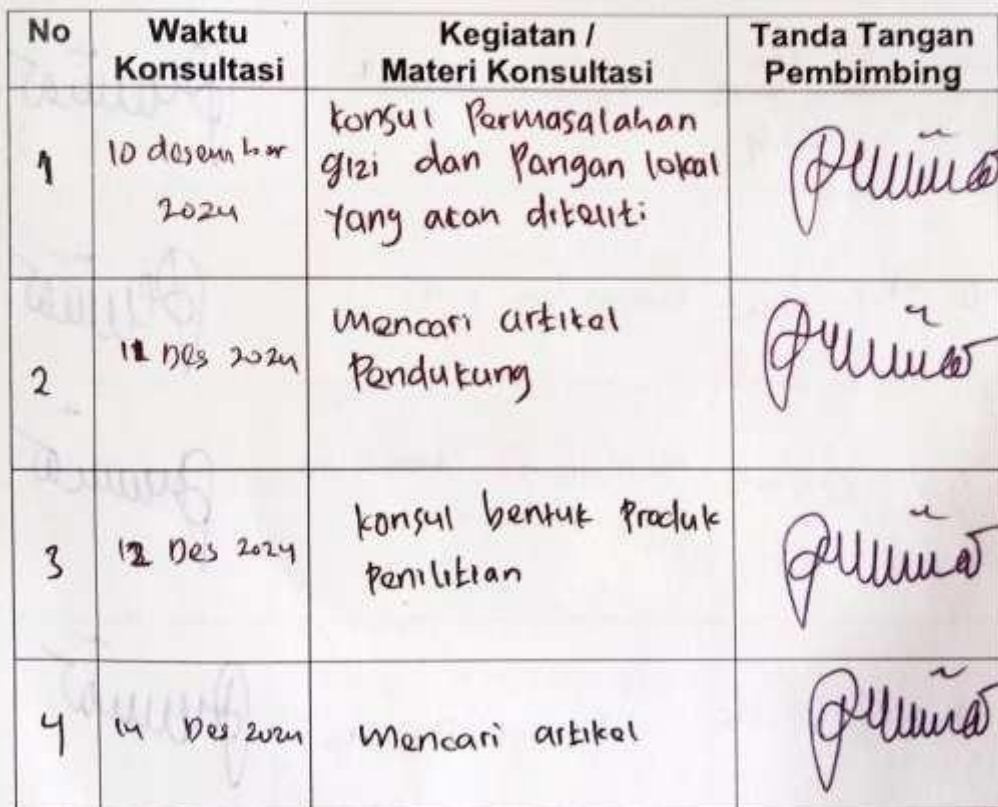 No Waktu Konsultasi Kegiatan / Materi Konsultasi Tanda Tangan Pembimbing
1 10 desember 2024 konsul Permasalahan gizi dan Pangan lokal yang akan diteliti
2 11 Des 2024 Mencari artikel Pendukung
3 12 Des 2024 konsul bentuk Produk Penilitian
4 14 Des 2024 Mencari artikel